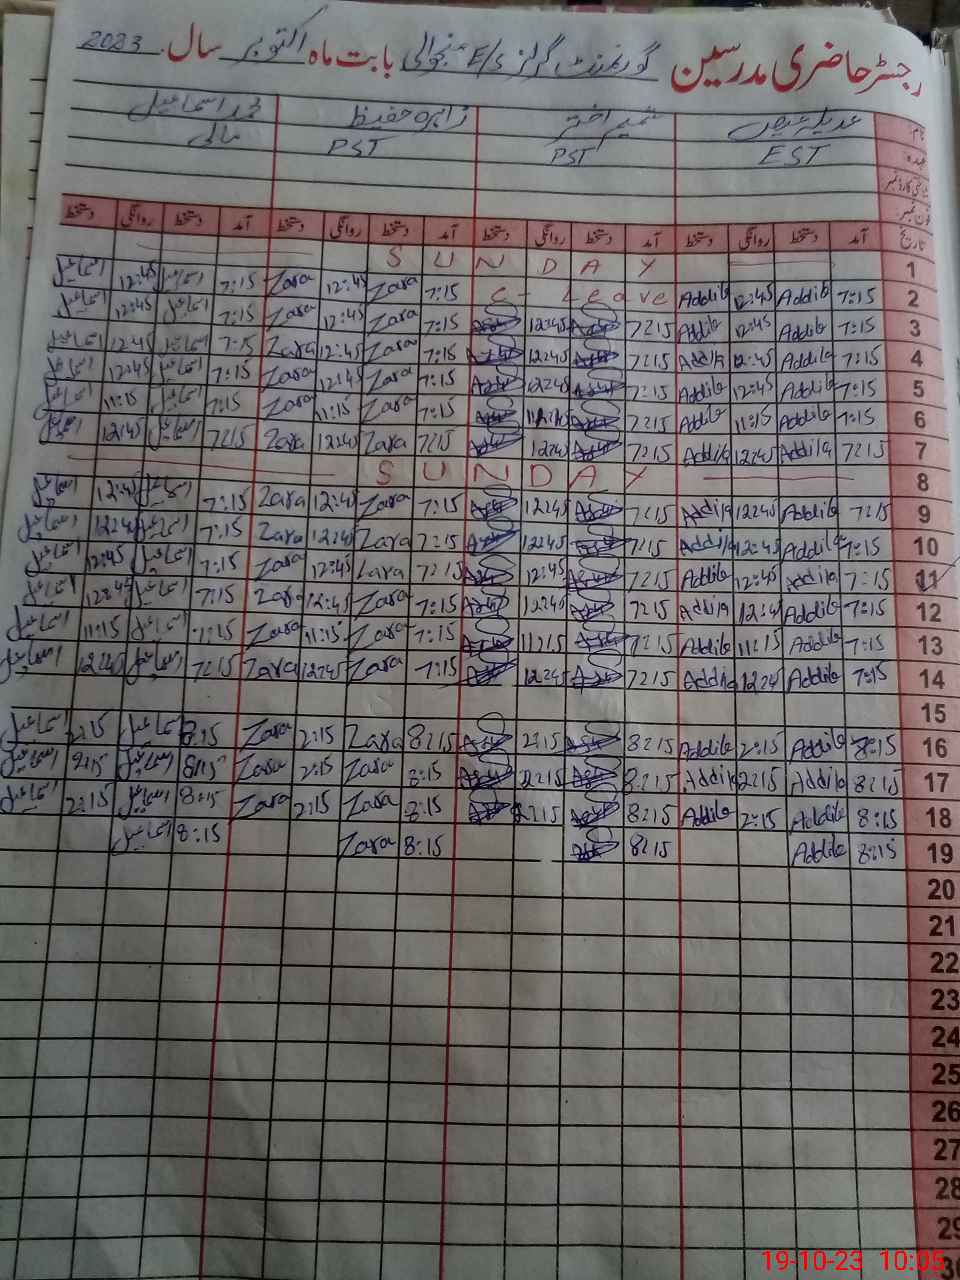 رجسٹر حاضری مدرسین گورنمنٹ گرلز E/S بابت ماہ اکتوبر سال 2023
نام: عدیلہ شمیم اختر زاہرہ حفیظ محمد اسماعیل
عہدہ: EST PST PST مالی
فون نمبر:
تاریخ آمد دستخط روانگی دستخط آمد دستخط روانگی دستخط آمد دستخط روانگی دستخط آمد دستخط روانگی دستخط
1 SUNDAY
2 7:15 Addila 12:45 Addila C- Leave 7:15 Zara 12:45 Zara 7:15 اسماعیل 12:45 اسماعیل
3 7:15 Addila 12:45 Addila 7:15 12:45 7:15 Zara 12:45 Zara 7:15 اسماعیل 12:45 اسماعیل
4 7:15 Addila 12:45 Addila 7:15 12:45 7:15 Zara 12:45 Zara 7:15 اسماعیل 12:45 اسماعیل
5 7:15 Addila 12:45 Addila 7:15 12:45 7:15 Zara 12:45 Zara 7:15 اسماعیل 12:45 اسماعیل
6 7:15 Addila 11:15 Addila 7:15 11:15 7:15 Zara 11:15 Zara 7:15 اسماعیل 11:15 اسماعیل
7 7:15 Addila 12:45 Addila 7:15 12:45 7:15 Zara 12:45 Zara 7:15 اسماعیل 12:45 اسماعیل
8 SUNDAY
9 7:15 Addila 12:45 Addila 7:15 12:45 7:15 Zara 12:45 Zara 7:15 اسماعیل 12:45 اسماعیل
10 7:15 Addila 12:45 Addila 7:15 12:45 7:15 Zara 12:45 Zara 7:15 اسماعیل 12:45 اسماعیل
11 7:15 Addila 12:45 Addila 7:15 12:45 7:15 Zara 12:45 Zara 7:15 اسماعیل 12:45 اسماعیل
12 7:15 Addila 12:45 Addila 7:15 12:45 7:15 Zara 12:45 Zara 7:15 اسماعیل 12:45 اسماعیل
13 7:15 Addila 11:15 Addila 7:15 11:15 7:15 Zara 11:15 Zara 7:15 اسماعیل 11:15 اسماعیل
14 7:15 Addila 12:45 Addila 7:15 12:45 7:15 Zara 12:45 Zara 7:15 اسماعیل 12:45 اسماعیل
15
16 8:15 Addila 2:15 Addila 8:15 2:15 8:15 Zara 2:15 Zara 8:15 اسماعیل 2:15 اسماعیل
17 8:15 Addila 2:15 Addila 8:15 2:15 8:15 Zara 2:15 Zara 8:15 اسماعیل 2:15 اسماعیل
18 8:15 Addila 2:15 Addila 8:15 2:15 8:15 Zara 2:15 Zara 8:15 اسماعیل 2:15 اسماعیل
19 8:15 Addila 8:15 8:15 Zara 8:15 اسماعیل
20
21
22
23
24
25
26
27
28
29
30
19-10-23 10:05